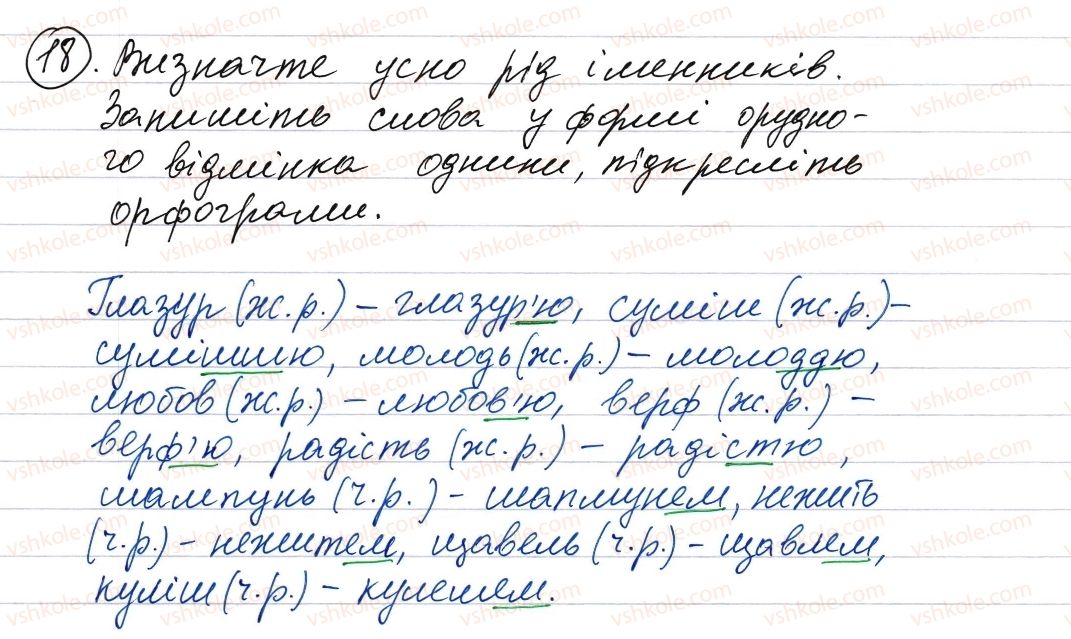 18. Визначте усно рід іменників.
Запишіть слова у формі орудно-
го відмінка однини, підкресліть
орфограми.
Глазур (ж.р.) – глазур'ю, суміш (ж.р.) –
сумішшю, молодь (ж.р.) – молоддю,
любов (ж.р.) – любов'ю, верф (ж.р.) –
верф'ю, радість (ж.р.) – радістю,
шампунь (ч.р.) – шапмунем, нежить
(ч.р.) – нежитем, щавель (ч.р.) – щавлем,
куліш (ч.р.) – кулешем.